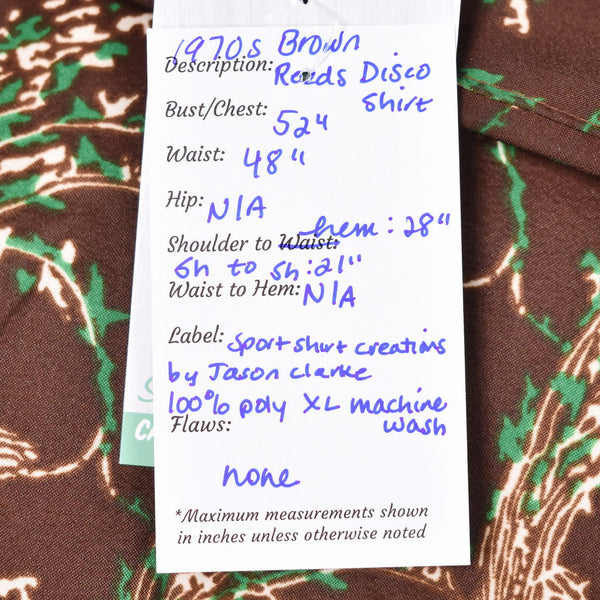 1970s Brown
Description: Reeds Disco
Shirt
Bust/Chest: 52"
Waist: 48"
Hip: N/A
Shoulder to Waist: hem: 28"
Sh to Sh: 21"
Waist to Hem: N/A
Label: Sport shirt creations
by Jason Clarke
100% poly XL machine
Flaws: wash
none
*Maximum measurements shown
in inches unless otherwise noted